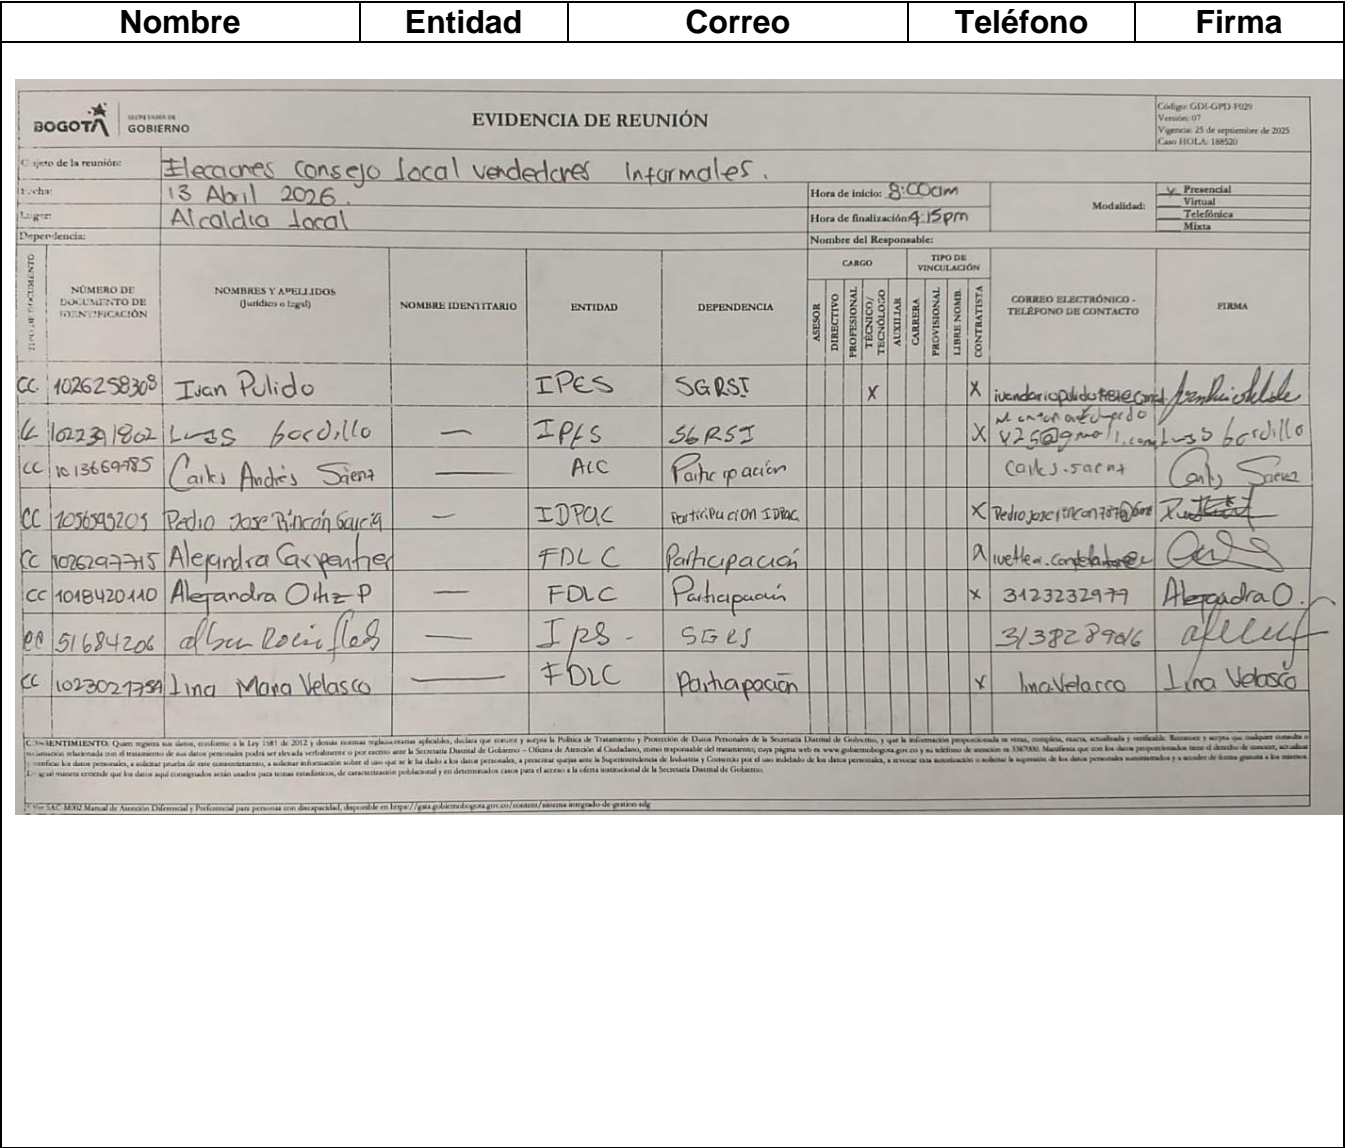 Nombre Entidad Correo Teléfono Firma
BOGOTÁ SECRETARÍA DE GOBIERNO
EVIDENCIA DE REUNIÓN
Código: GDI-GPD-F029
Versión: 07
Vigencia: 25 de septiembre de 2025
Caso HOLA: 188520
Objeto de la reunión: Elecciones Consejo local vendedores Informales.
Fecha: 13 Abril 2026. Hora de inicio: 8:00am
Lugar: Alcaldia local Hora de finalización: 4:15pm
Modalidad: Presencial
Virtual
Telefónica
Mixta
Dependencia: Nombre del Responsable:
TIPO DE DOCUMENTO
NÚMERO DE DOCUMENTO DE IDENTIFICACIÓN
NOMBRES Y APELLIDOS
(Jurídico o legal)
NOMBRE IDENTITARIO
ENTIDAD
DEPENDENCIA
CARGO
ASESOR
DIRECTIVO
PROFESIONAL
TÉCNICO/ TECNÓLOGO
AUXILIAR
TIPO DE VINCULACIÓN
CARRERA
PROVISIONAL
LIBRE NOMB.
CONTRATISTA
CORREO ELECTRÓNICO - TELÉFONO DE CONTACTO
FIRMA
CC 1026258308 Ivan Pulido IPES SGRSI X X
1022391802 Luis Gordillo — IPES SGRSI X Luis Gordillo
CC 1013669985 Carlos Andrés Sáenz — ALC Participación Carlos.saenz Carlos Saenz
CC 1056595205 Pedro Jose Rincón García — IDPAC Participacion IDPAC X
CC 1026297715 Alejandra Carpentier FDLC Participación X
CC 1018420110 Alejandra Ortiz P — FDLC Participación X 3123232979 Alejandra O.
CC 51684206 — SGRS 3138289016
CC 1023021754 Lina Maria Velasco — FDLC Participación X lina.Velasco Lina Velasco
CONSENTIMIENTO: Quien registra sus datos, conforme a la Ley 1581 de 2012 y demás normas reglamentarias aplicables, declara que conoce y acepta la Política de Tratamiento y Protección de Datos Personales de la Secretaría Distrital de Gobierno, y que la información proporcionada es veraz, completa, exacta, actualizada y verificable. Reconoce y acepta que cualquier consulta o
reclamación relacionada con el tratamiento de sus datos personales podrá ser elevada verbalmente o por escrito ante la Secretaría Distrital de Gobierno – Oficina de Atención al Ciudadano, como responsable del tratamiento, cuya página web es www.gobiernobogota.gov.co y su teléfono de atención es 3387000. Manifiesta que con los datos proporcionados tiene el derecho de conocer, actualizar
y rectificar los datos personales, a solicitar prueba de este consentimiento, a solicitar información sobre el uso que se le ha dado a los datos personales, a presentar quejas ante la Superintendencia de Industria y Comercio por el uso indebido de los datos personales, a revocar esta autorización o solicitar la supresión de los datos personales suministrados y a acceder de forma gratuita a los mismos.
De igual manera entiende que los datos aquí consignados serán usados para temas estadísticos, de caracterización poblacional y en determinados casos para el acceso a la oferta institucional de la Secretaría Distrital de Gobierno.
* Ver SAC-M002 Manual de Atención Diferencial y Preferencial para personas con discapacidad, disponible en